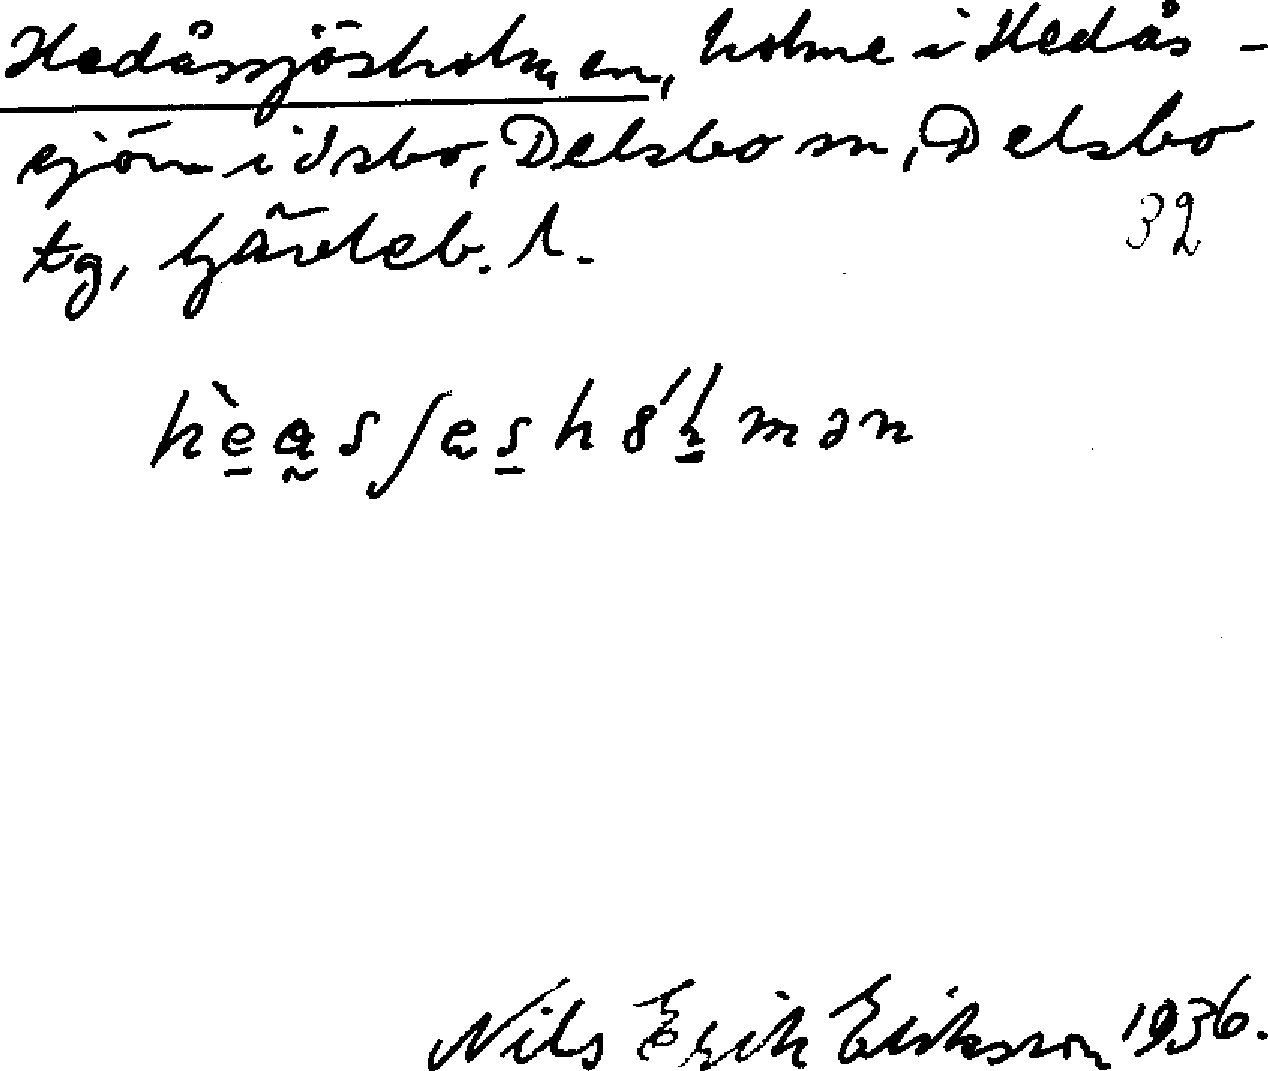 Hedåssjösholmen, holme i Hedås-
sjön i Isbo, Delsbo sn, Delsbo
tg, Gävleb. l.
32
Nils Erik Eriksson 1936.